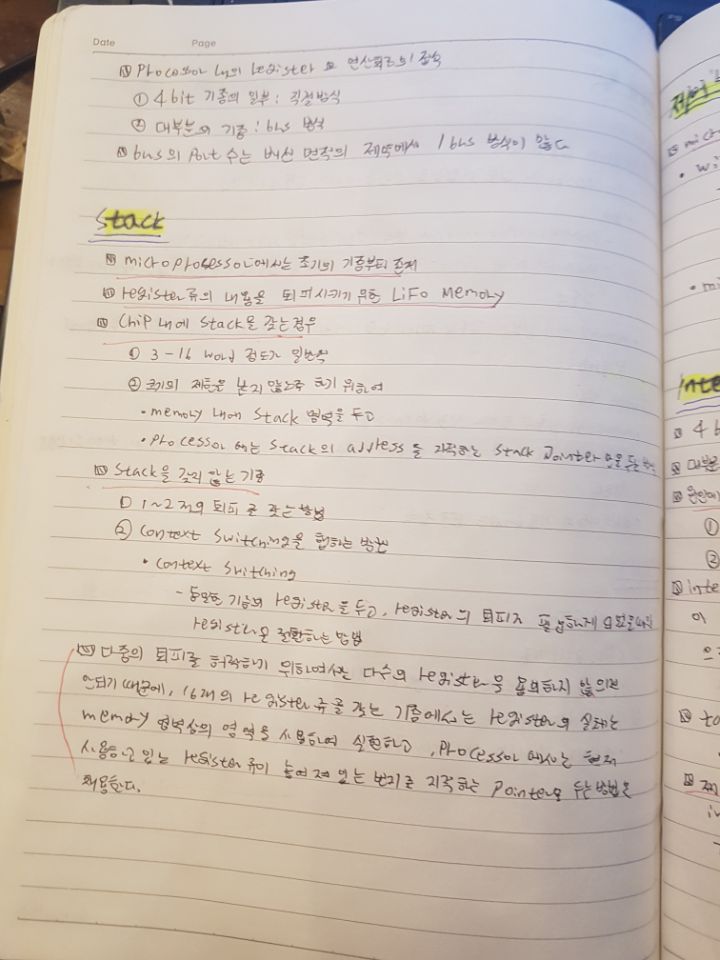 Date Page
Processor 내의 register 와 연산회로의 접속
① 4bit 기종의 일부 : 직결방식
② 대부분의 기종 : bus 방식
bus의 Port 수는 배선 면적의 제약에서 1 bus 방식이 많다
Stack
microprocessor에서는 초기의 기종부터 존재
register류의 내용을 퇴피시키기 위한 LiFo Memory
Chip 내에 Stack을 갖는경우
① 3-16 word 정도가 일반적
② 크기의 제한을 받지 않도록 하기 위하여
• memory 내에 Stack 영역을 두고
• Processor 에는 Stack의 address 를 지적하는 Stack Pointer 만을 두는
Stack을 갖지 않는 기종
① 1~2 개의 퇴피 를 갖는 방법
② Context Switching을 행하는 방법
• Context Switching
- 동일한 기능의 register 를 두고, register 의 퇴피가 필요하게
register을 전환하는 방법
다중의 퇴피를 허락하기 위하여서는 다수의 register을 용의하지 않으면
안되기 때문에, 16개의 register 류를 갖는 기종에서는 register의 실체는
memory 영역상의 영역을 사용하여 실현하고, Processor 에서는 현재
사용하고 있는 register 류이 놓여져 있는 번지를 지적하는 Pointer을 두는 방법을
채용한다.
제어
mich
• wi
• mi
Inte
4 b
대부분
원인에
①
②
inte
이
으
to